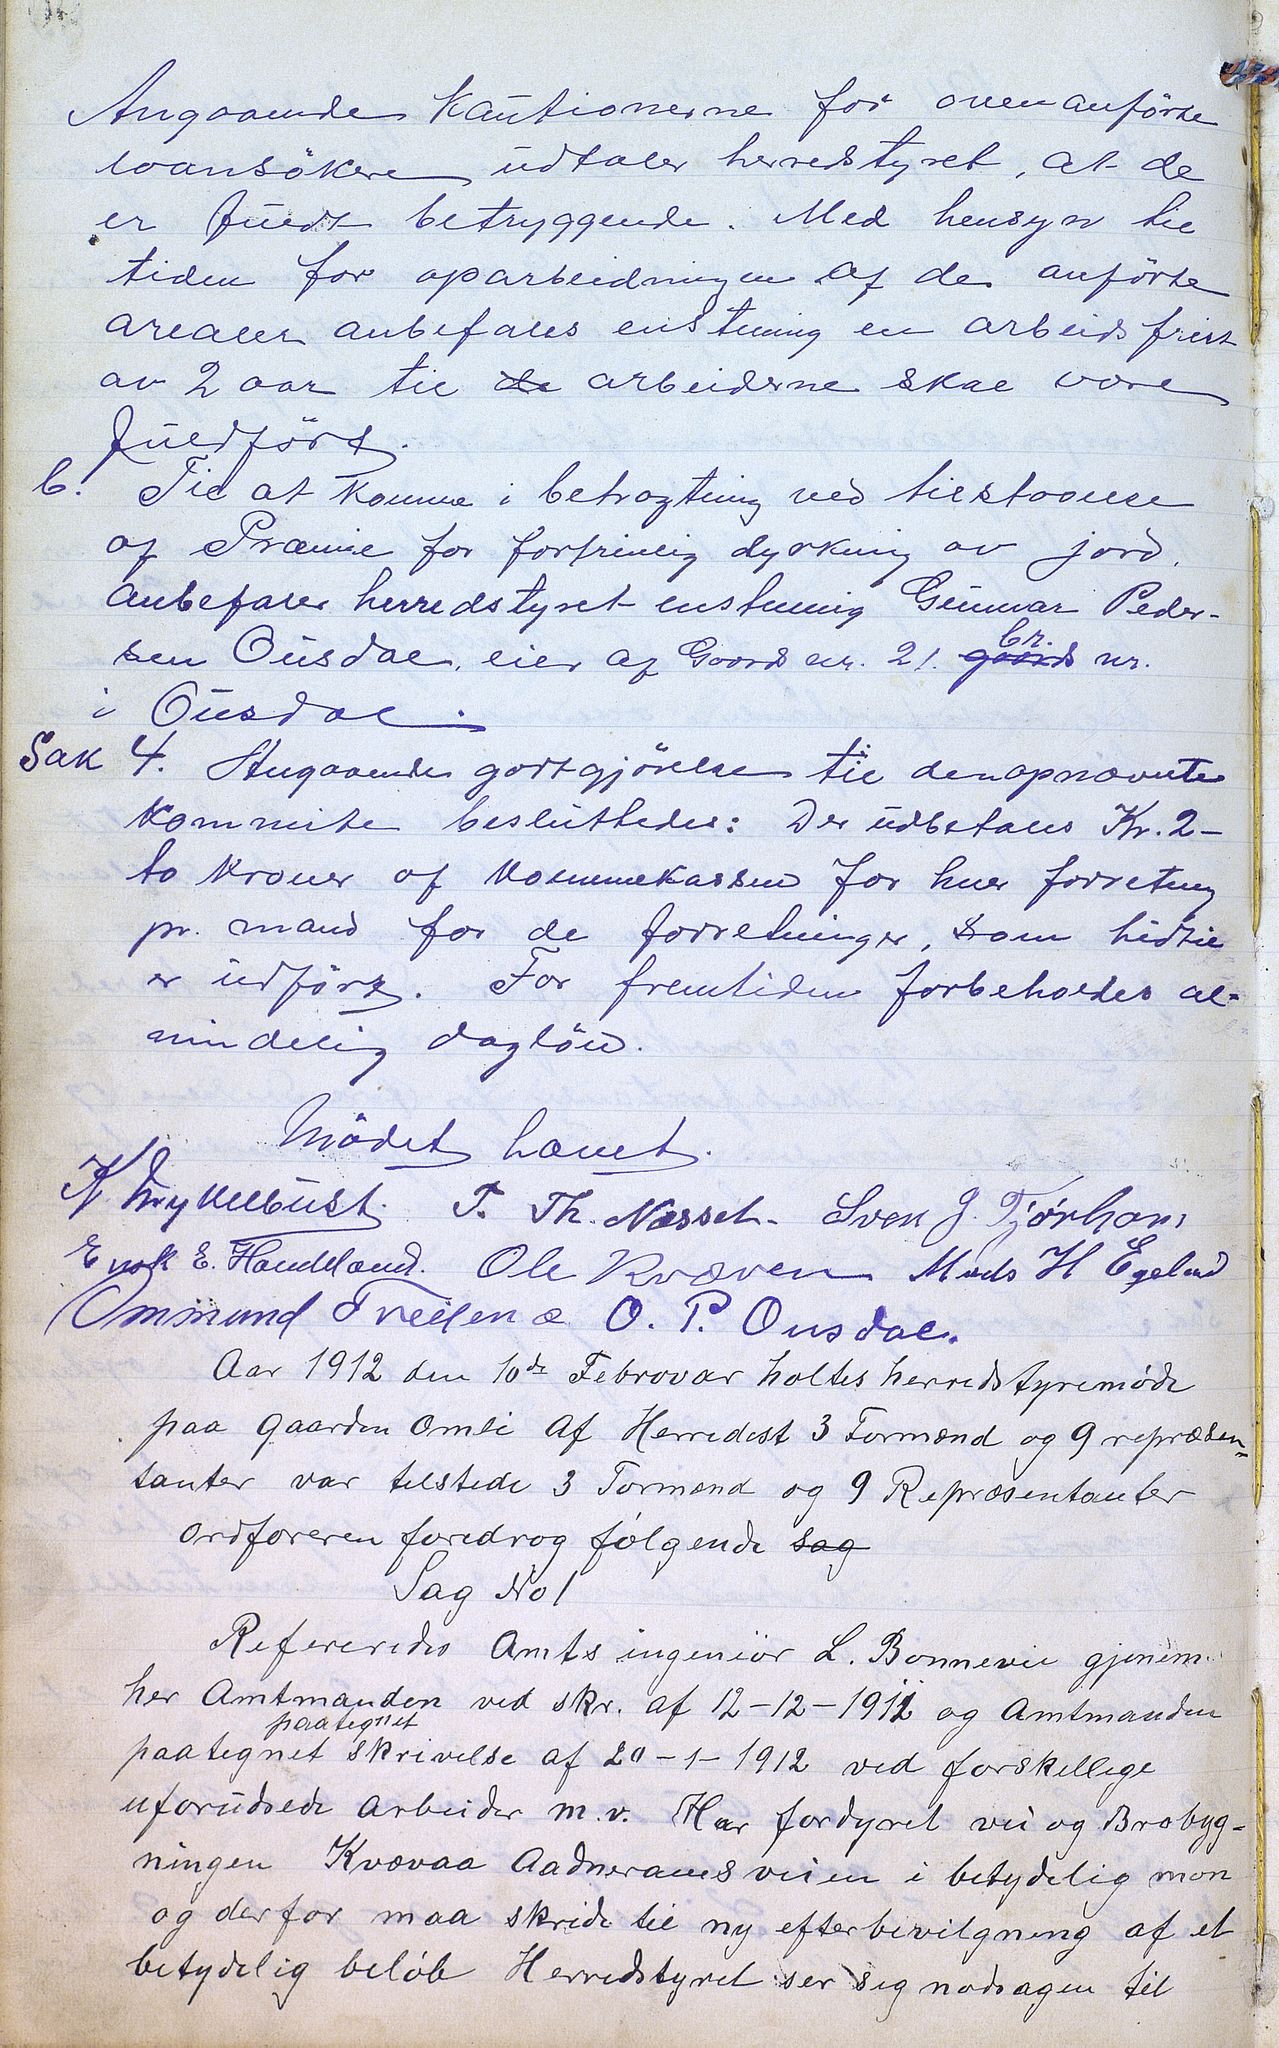 Angaaende Kautionerne for ovenanførte
laansökere udtaler herredstyret, at de
er fuldt betryggende. Med hensyn til
tiden for oparbeidningen af de anförte
arealer anbefales enstemig en arbeidsfrist
av 2 aar til de arbeiderne skal være
fuldført.
b. Til at komme i betragtning ved tilstaaelse
af Præmie for fortrinlig dyrkning av jord,
anbefaler herredstyret enstemig Gunvar Peder-
sen Ousdal, eier af Gaards nr. 21. gaards br. nr.
i Ousdal.
Sak 4. Angaaende godtgjörelse til den opnævnte
kommite besluttedes: Der udbetales Kr. 2-
to kroner af kommunekassen for hver forretning
pr. mand for de forretninger, som hidtil
er udfört. For fremtiden forbeholdes al-
mindelig daglön.
Mödet hævet.
K Trykelbust. T. Th. Nesset. Sven J. Tjørhom
Enok E. Haudeland. Ole Kvæven Mads H Egeland
Ommund Treilend O. P. Ousdal.
Aar 1912 den 10de Februar holtes herredstyremøde
paa gaarden Omli Af Herredest 3 Formænd og 9 repræsen-
tanter var tilstede 3 Formænd og 9 Repræsentanter
Ordføreren foredrog følgende sag
Sag No 1
Refereredes Amtsingeniør L. Bonnevie gjenem
her Amtmanden ved skr. af 12-12-1911 og Amtmanden
paategnet
paategnet skrivelse af 20-1-1912 ved forskellige
uforudsede Arbeider m.v. Har fordyret vei og Brobyg-
ningen Kvævaa Aadneramsveien i betydelig mon
og derfor maa skride til ny efterbevilgning af et
betydelig beløb Herredstyret ser sig nødsagen til